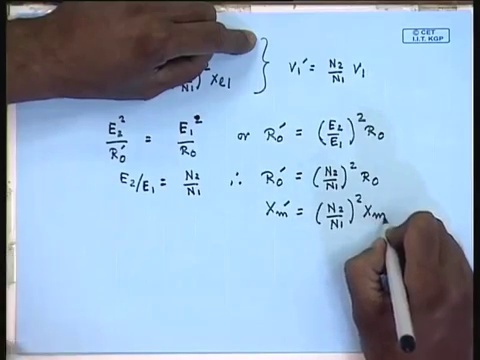 © CET
I.I.T. KGP
N₁)² Xe1 } V₁′ = N₂/N₁ V₁
E₂²/R₀′ = E₁²/R₀ or R₀′ = (E₂/E₁)² R₀
E₂/E₁ = N₂/N₁ ∴ R₀′ = (N₂/N₁)² R₀
Xm′ = (N₂/N₁)² Xm